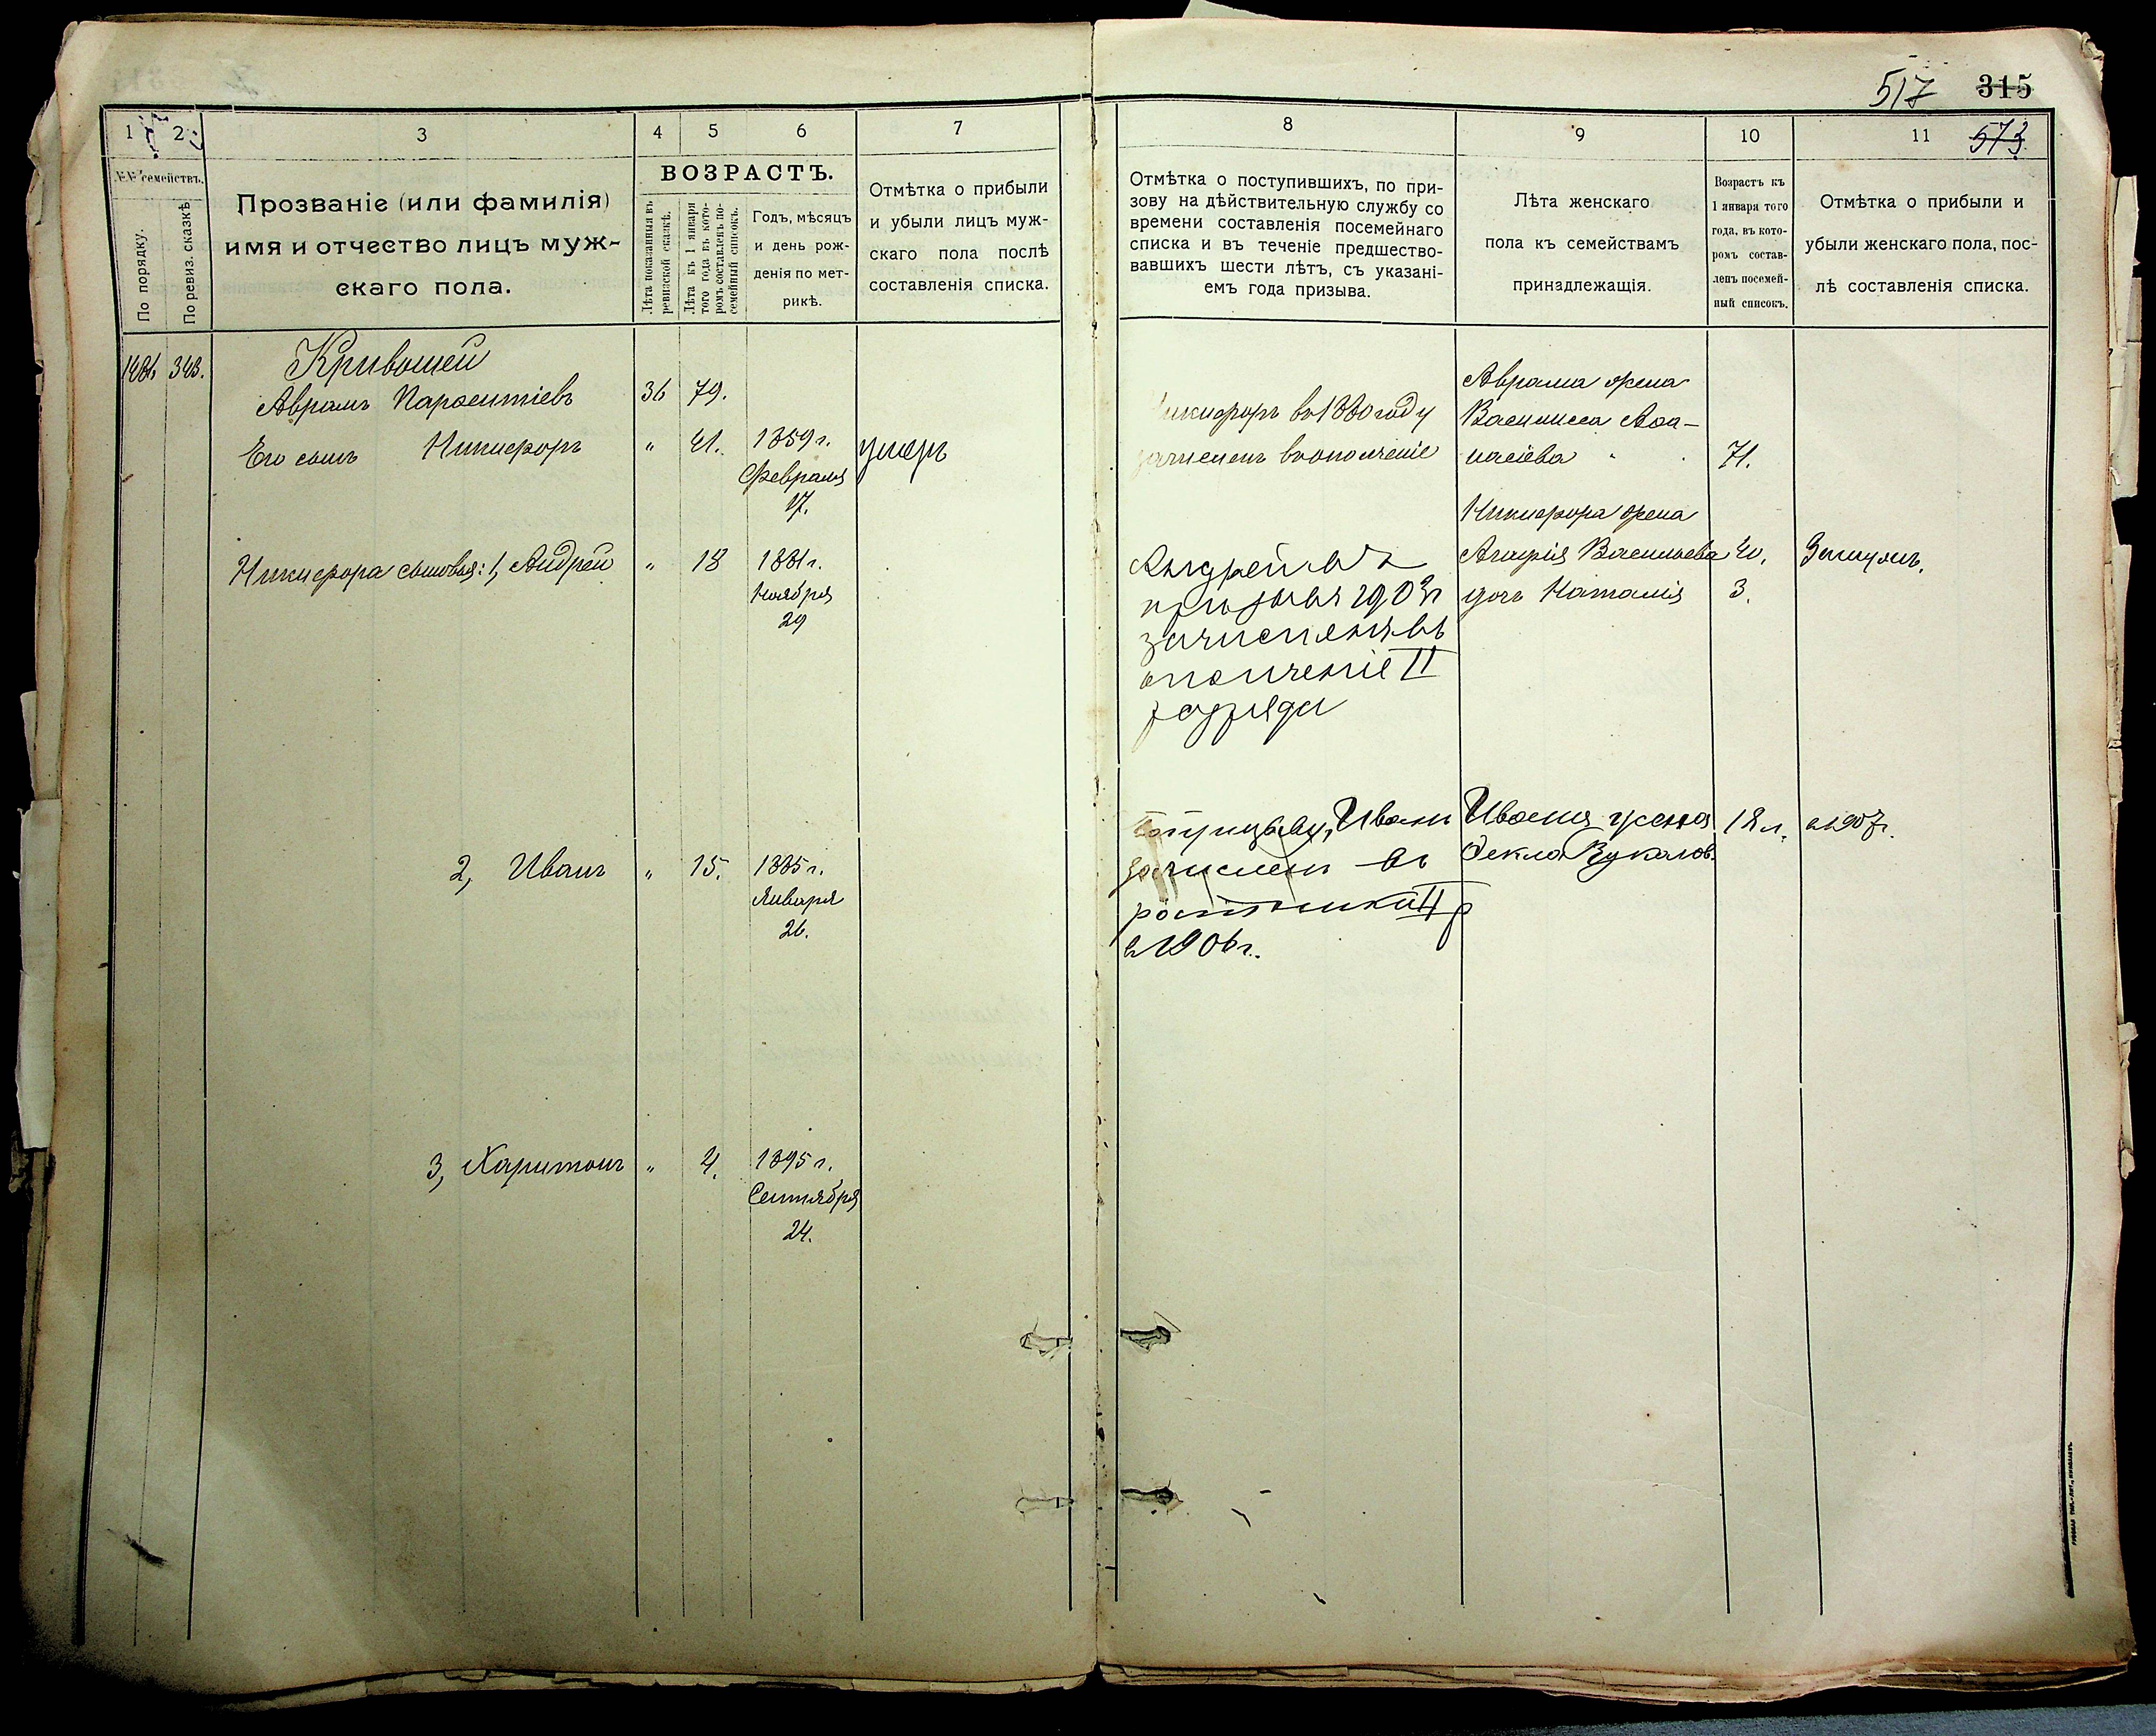 517 315
1 2 3 4 5 6 7
№№ семействъ.
По порядку.
По ревиз. сказкѣ
Прозваніе (или фамилія)
имя и отчество лицъ муж-
скаго пола.
ВОЗРАСТЪ.
Лѣта показанныя въ
ревизской сказкѣ.
Лѣта къ 1 января
того года въ кото-
ромъ составленъ по-
семейный списокъ.
Годъ, мѣсяцъ
и день рож-
денія по мет-
рикѣ.
Отмѣтка о прибыли
и убыли лицъ муж-
скаго пола послѣ
составленія списка.
343. Кривошей
Аврамъ Парѳентіевъ 36 79.
Его сынъ Никифоръ " 41. 1859 г. умеръ
Февраля
17.
Никифора сыновья: 1, Андрей " 18 1881 г.
Ноября
29
2, Иванъ " 15. 1885 г.
Января
26.
3, Харитонъ " 4. 1895 г.
Сентября
24.
8 9 10 11 573
Отмѣтка о поступившихъ, по при-
зову на дѣйствительную службу со
времени составленія посемейнаго
списка и въ теченіе предшество-
вавшихъ шести лѣтъ, съ указані-
емъ года призыва.
Лѣта женскаго
пола къ семействамъ
принадлежащія.
Возрастъ къ
1 января того
года, въ кото-
ромъ состав-
ленъ посемей-
ный списокъ.
Отмѣтка о прибыли и
убыли женскаго пола, пос-
лѣ составленія списка.
Никифоръ въ 1880 году
зачисленъ въ ополченіе
Андрей
призыва 1903 г
зачисленъ въ
ополченіе II
разряда
Иванъ
зачисленъ въ
ратники II р
в 1906 г.
Аврама жена
Василиса Аѳа-
насіева 71.
Никифора жена
Агафія Васильева 40, Замужъ.
дочь Наталія 3.
Ивана жена 18 л. в 1907 г.
Ѳекла